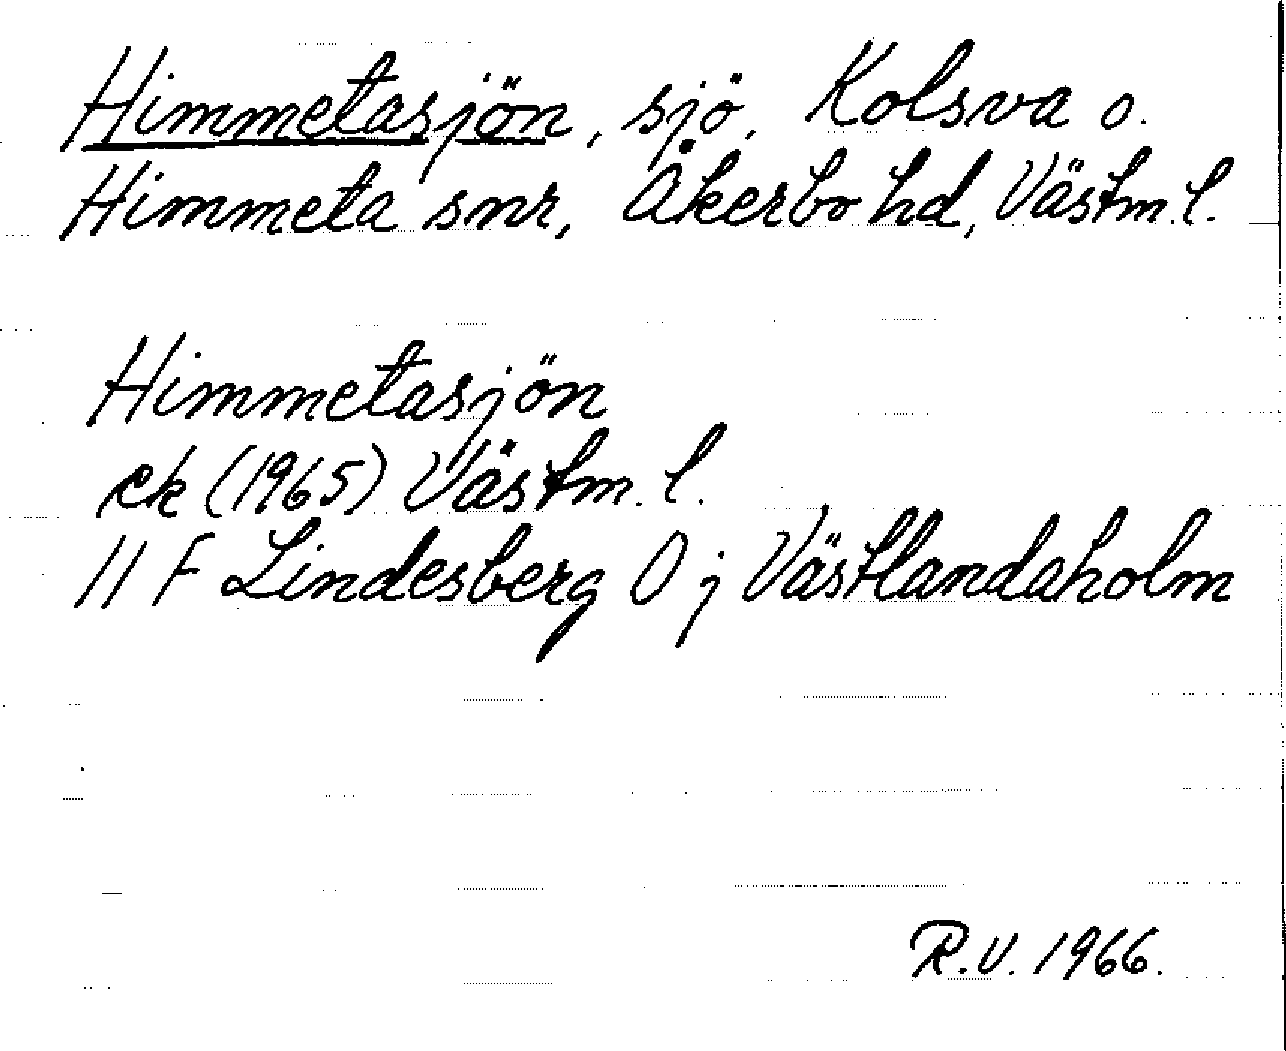 Himmetasjön, sjö, Kolsva o.
Himmeta snr, Åkerbo hd, Västm. l.
Himmetasjön
ek (1965) Västm. l.
11 F Lindesberg 0 j Västlandaholm
R.V. 1966.